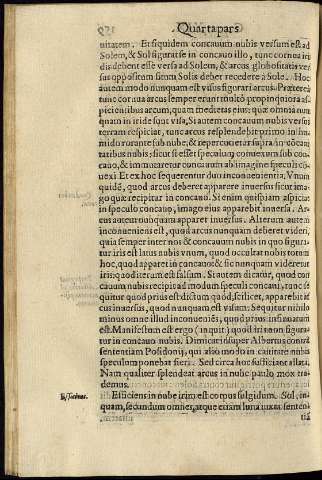 Quarta pars
uitatem. Et siquidem concauum nubis versum est ad
Solem, & Sol figurat se in concauo illo, tunc cornea iri
dis debent esse versa ad Solem, & arcus globositatis ver
sus oppositum situm Solis deber recedere à Sole. Hoc
autem modo nunquam est visus figurari arcus. Præterea
tunc cornua arcus semper erunt multò propinquiora as-
picientibus arcum, quam medietas eius: quæ omnia nun
quam in iride sunt visa, Si autem concauum nubis versus
terram respiciat, tunc arcus resplendebit primo in hu-
mido rorante sub nube, & repercutietur supra in conca
tatibus nubis; sicut si esset speculum concauum sub con-
cauo, & immutaretur concauum ab imagine speculi con
uexi Et ex hoc sequerentur duo inconuenientia, Vnum
quidé, quod arcus deberet apparere inuersus sicut ima-
go quæ recipitur in concauo. Si enim quispiam aspiciat
in speculo concauo, imago eius apparebit inuersa. Ar-
cus autem nunquam apparet inuersus. Alterum autem
inconueniens est, quod arcus nunquam deberet videri,
quia semper inter nos & concauum nubis in quo figura-
tur iris est latus nubis vnum, quod occultat nobis totum
hoc, quod apparet in concauo: & sic nunquam videretur
iris: quod iterum est falsum. Si autem dicatur, quod con
cauum nubis recipit ad modum speculi concaui, tunc se
quitur quod prius est dictum quod, scilicet, apparebit ar
cus inuersus, quod nunquam est visum. Sequitur nihilo
minus omne illud inconueniens, quod prius insinuatum
est. Manifestum est ergo (inquit) quod iris non figura-
tur in concauo nubis. Dimicat igitur Albertus contra
sententiam Posidonij, qui alio modo in cauitate nubis
speculum ponebat fieri. Sed circa hoc sufficiant allata.
Nam qualiter splendeat arcus in nube paulo mox tra-
demus.
Efficiens. Efficiens in nube irim est corpus fulgidum. Sol, in-
quam, secundum omnes, atque etiam luna iuxta senten-
tiā